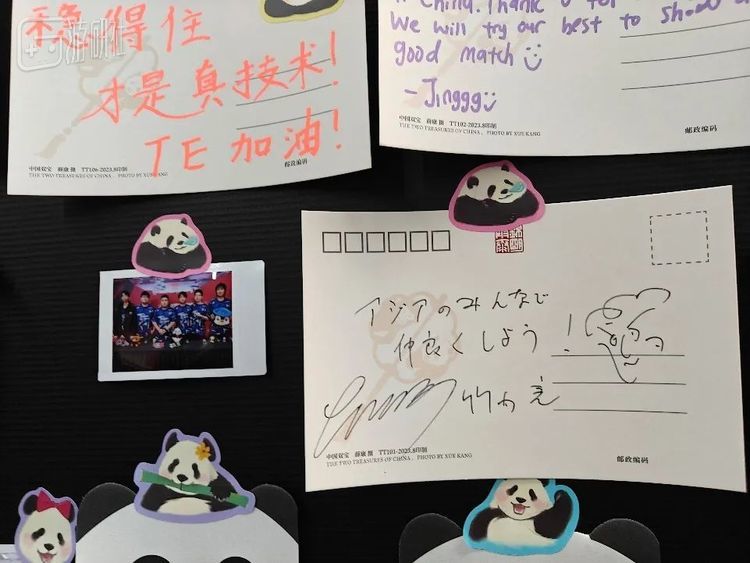 游研社
稳得住
才是真技术!
TE加油!
中国双宝 薛康 摄 TT106-2023.8印制
THE TWO TREASURES OF CHINA, PHOTO BY XUE KANG
邮政编码
China. Thank U for
We will try our best to show
good match
- Jinggg
中国双宝 薛康 摄 TT102-2023.8印制
THE TWO TREASURES OF CHINA, PHOTO BY XUE KANG
邮政编码
アジアのみんなで
仲良くしよう!
竹内
中国双宝 薛康 摄 TT101-2023.8印制
THE TWO TREASURES OF CHINA, PHOTO BY XUE KANG
邮政编码